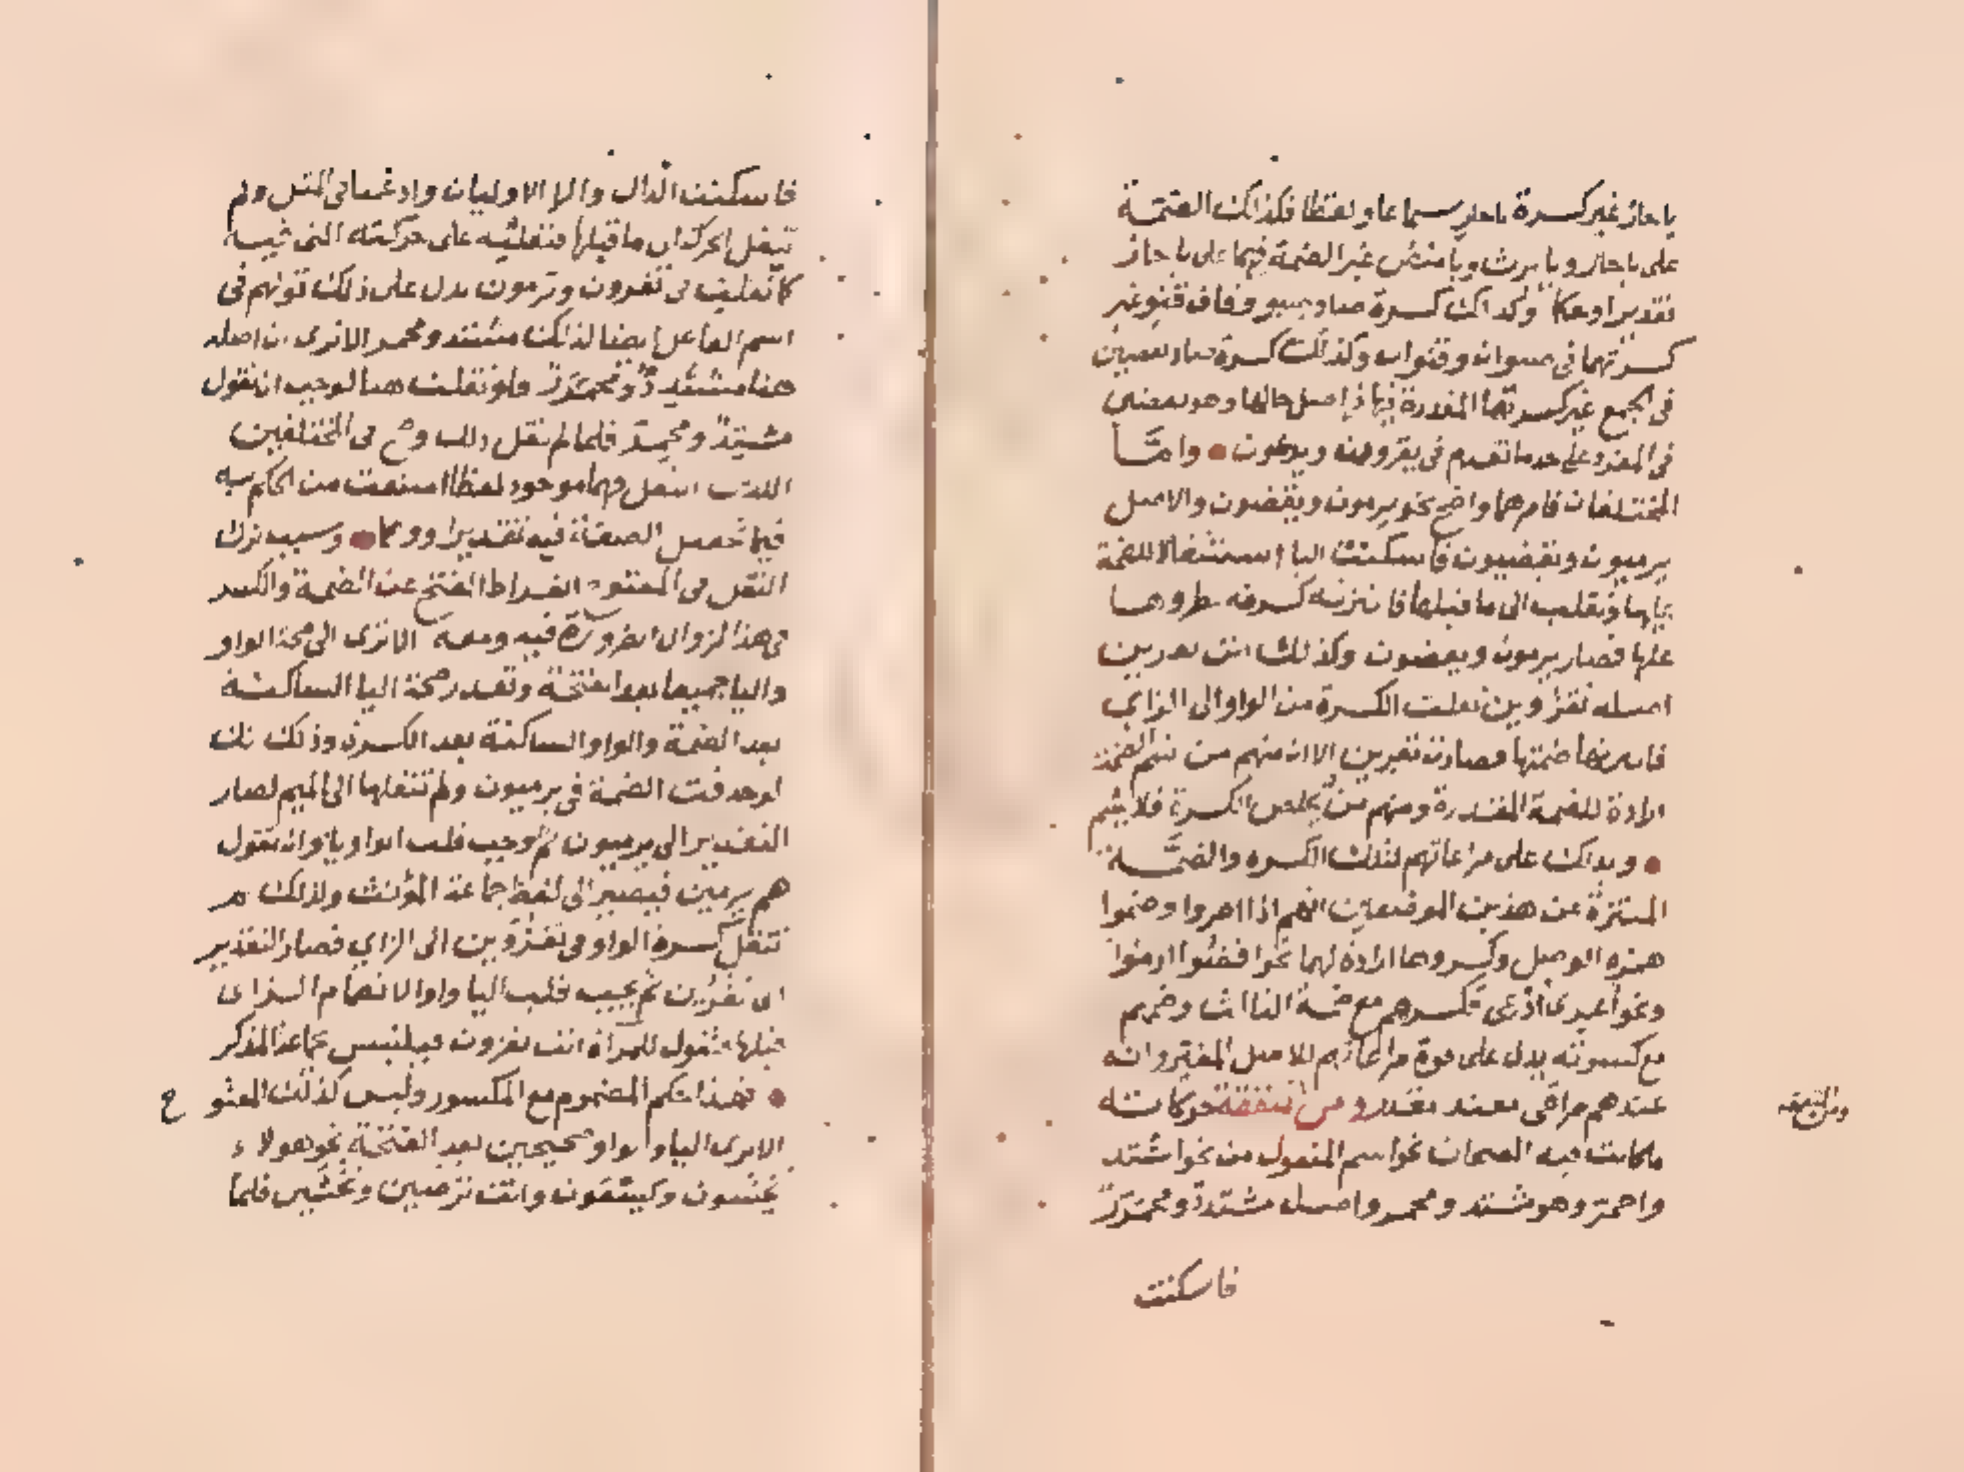 يا حار غير كسرة يا حار سماعا ولفظا فكذلك الضمة
على يا حار ويا برث ويا منص غير الضمة فيهما على يا حار
تقديرا وحكما وكذلك كسرة صاد صنو وقاف قنو غير
كسرتهما في صنوان وقنوان وكذلك كسرة ضاد تقضين
في الجمع غير كسرتها المقدرة فيها في اصل حالها وهو تقضي
في المفرد على حد ما تقدم في يغزون ويدعون واما
المختلفان فامرهما واضح نحو يرمون ويقضون والاصل
يرميون ويقضيون فاسكنت اليا استثقالا للضمة
عليها ونقلت الى ما قبلها فابتزته كسرته لطروها
عليها فصار يرمون ويقضون وكذلك انت تغزين
اصله تغزوين نقلت الكسرة من الواو الى الزاي
فابتزتها ضمتها فصارت تغزين الا ان منهم من يشم الضمة
ارادة للضمة المقدرة ومنهم من يخلص الكسرة فلا يشم
ويدلك على مراعاتهم لتلك الكسرة والضمة
المبتزة عن هذين الموضعين انهم اذا امروا ضموا
همزة الوصل وكسروها ارادة لهما نحو اقضوا ارموا
ونحو اغزي ادعي فكسرهم مع ضمة الثالث وضمهم
مع كسرته يدل على قوة مراعاتهم للاصل المغير وانه
عندهم مراعى معتد مقدر ومن المتفقة حركاته
ما كانت فيه الفتحتان نحو اسم المفعول من نحو اشتد
واحمر وهو مشتد ومحمر واصله مشتدد ومحمرر
فاسكنت
فاسكنت الدال والرا الاوليان وادغمتا في المثل ولم
تنقل الحركة الى ما قبلها فتغلبه على حركته التي فيه
كما تغلب في تغزون وترمون يدل على ذلك قولهم في
اسم الفاعل ايضا كذلك مشتد ومحمر الا ترى ان اصله
هنا مشتدد ومحمرر فلو نقلت هنا لوجب ان تقول
مشتد ومحمر فلما لم تقل ذلك وصح في المختلفين
اللذين النقل فيهما موجود لفظا امتنعت من الحكم به
فيما تحصل الصنعة فيه تقديرا ووهما وسبب ترك
النقل في المفتوح انفراد الفتح عن الضمة والكسر
في هذا النوال لضرورة فيه ومعه الا ترى الى صحة الواو
واليا جميعا بعد الفتحة وتعذر صحة اليا الساكنة
بعد الضمة والواو الساكنة بعد الكسرة وذلك انك
لو حذفت الضمة في يرميون ولم تنقلها الى الميم لصار
التقدير الى يرميون ثم وجب قلب الواو يا وان تقول
هم يرمين فيصير الى لفظ جماعة المؤنث وكذلك لو لم
تنقل كسرة الواو في تغزوين الى الزاي فصار التقدير
الى تغزين ثم يجب قلب اليا واوا لانضمام الزاي
قبلها فتقول للمرأة انت تغزون فيلتبس بجماعة المذكر
فهذا حكم المضموم مع المكسور وليس كذلك المفتو ح
الا ترى اليا والواو صحيحين بعد الفتحة نحو هولاء
يخشون ويسعون وانت ترضين وتخشين فلما